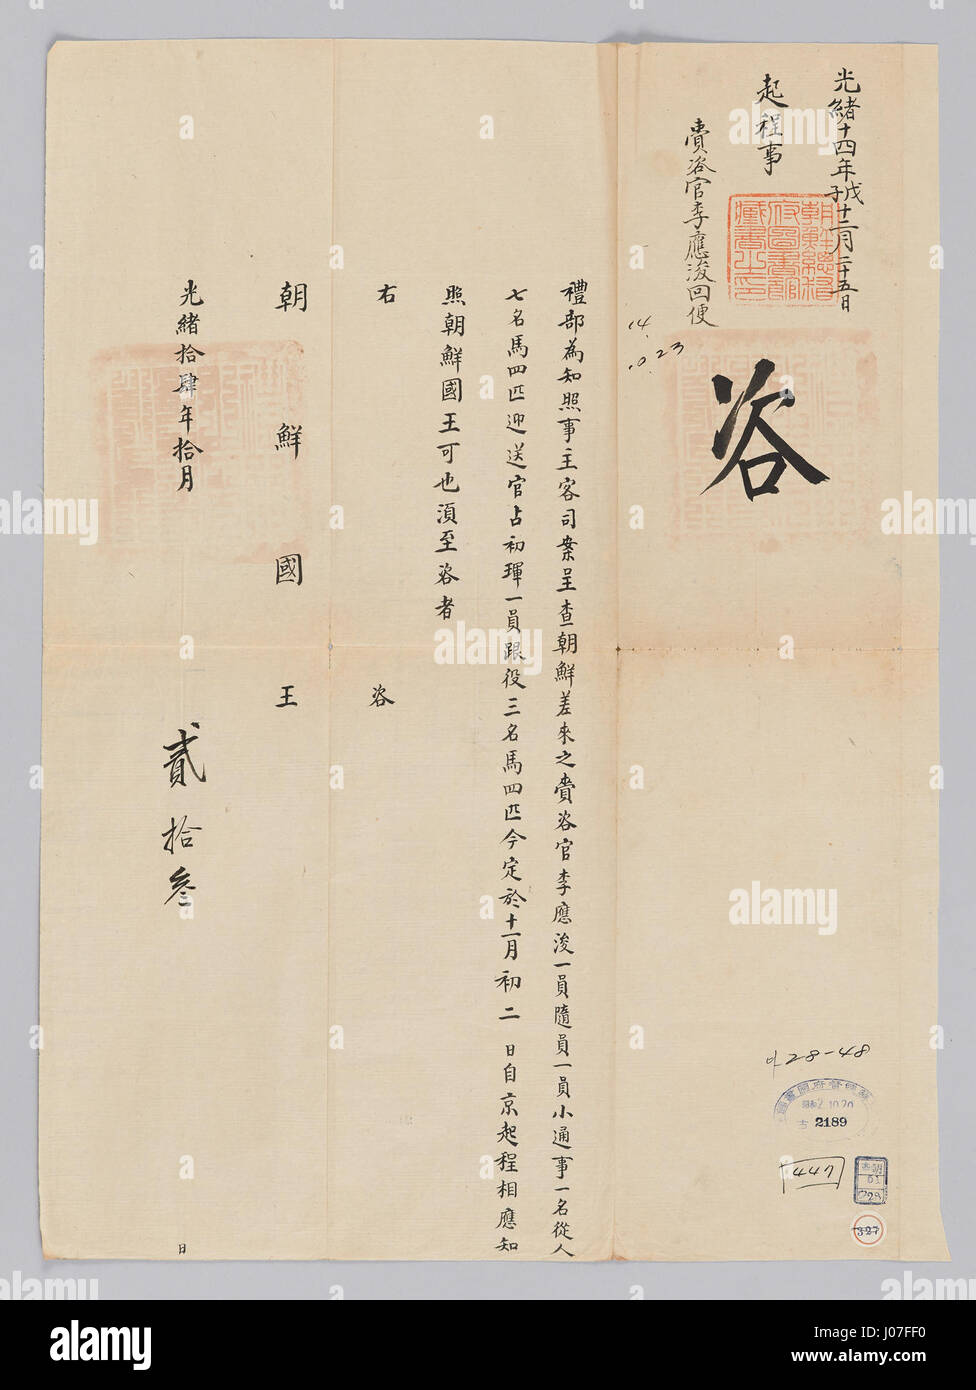 光緒十四年戊子十二月二十五日
起程事
賫咨官李應浚回便
朝鮮總督府圖書館藏書之印
14.
10.23
咨
禮部為知照事主客司案呈查朝鮮差來之賫咨官李應浚一員隨員一員小通事一名從人
七名馬四匹迎送官占初琿一員跟役三名馬四匹今定於十一月初二日自京起程相應知
照朝鮮國王可也須至咨者
右咨
朝鮮國王
光緒拾肆年拾月貳拾叁日
28-48
2.10.20
古 2189
447
327
alamy
alamy stock photo
J07FF0
www.alamy.com